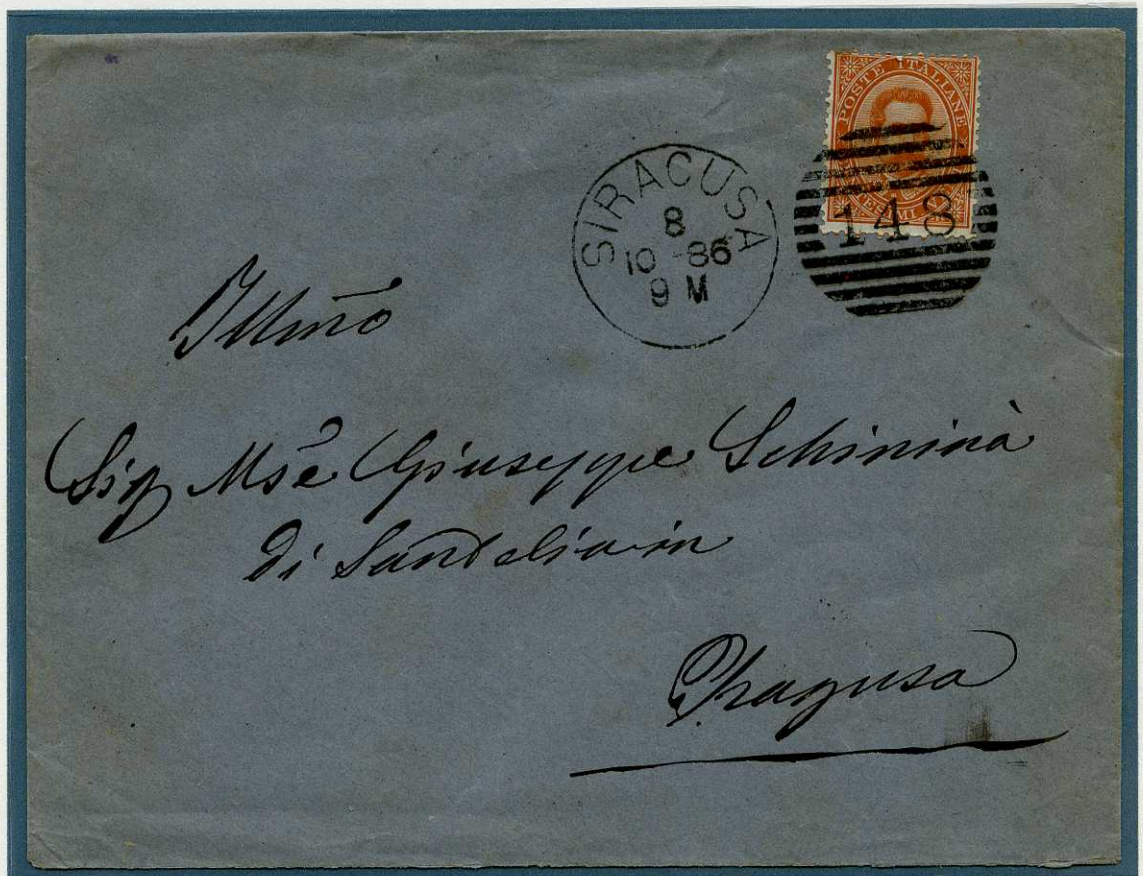 POSTE ITALIANE
148
SIRACUSA
8
10 - 86
9 M
Illmo
Sig Mse Giuseppe Schininà
di Sant'elia in
Ragusa